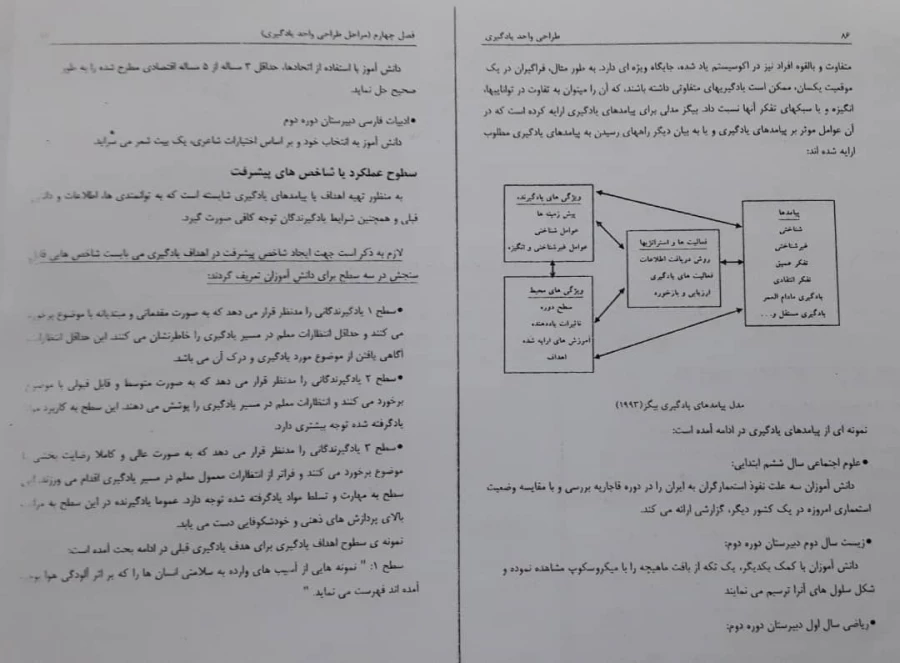 ۸۶
طراحی واحد یادگیری
متفاوت و بالقوه افراد نیز در اکوسیستم یاد شده، جایگاه ویژه ای دارد. به طور مثال، فراگیران در یک
موقعیت یکسان، ممکن است یادگیریهای متفاوتی داشته باشند، که آن را میتوان به تفاوت در تواناییها،
انگیزه و یا سبکهای تفکر آنها نسبت داد. بیگز مدلی برای پیامدهای یادگیری ارایه کرده است که در
آن عوامل موثر بر پیامدهای یادگیری و یا به بیان دیگر راههای رسیدن به پیامدهای یادگیری مطلوب
ارایه شده اند:
ویژگی های یادگیرنده
پیش زمینه ها
عوامل شناختی
عوامل غیرشناختی و انگیزه
ویژگی های محیط
سطح دوره
تاثیرات یاددهنده
آموزش های ارایه شده
اهداف
فعالیت ها و استراتژیها
روش دریافت اطلاعات
فعالیت های یادگیری
ارزیابی و بازخورد
پیامدها
شناختی
غیرشناختی
تفکر عمیق
تفکر انتقادی
یادگیری مادام العمر
یادگیری مستقل و...
مدل پیامدهای یادگیری بیگز(۱۹۹۳)
نمونه ای از پیامدهای یادگیری در ادامه آمده است:
●علوم اجتماعی سال ششم ابتدایی:
دانش آموزان سه علت نفوذ استعمارگران به ایران را در دوره قاجاریه بررسی و با مقایسه وضعیت
استعماری امروزه در یک کشور دیگر، گزارشی ارائه می کند.
●زیست سال دوم دبیرستان دوره دوم:
دانش آموزان با کمک یکدیگر، یک تکه از بافت ماهیچه را با میکروسکوپ مشاهده نموده و
شکل سلول های آنرا ترسیم می نمایند
●ریاضی سال اول دبیرستان دوره دوم:
فصل چهارم (مراحل طراحی واحد یادگیری)
دانش آموز با استفاده از اتحادها، حداقل ۳ مساله از ۵ مساله اقتصادی مطرح شده را به طور
صحیح حل نماید.
●ادبیات فارسی دبیرستان دوره دوم
دانش آموز به انتخاب خود و بر اساس اختیارات شاعری، یک بیت شعر می سراید.
سطوح عملکرد یا شاخص های پیشرفت
به منظور تهیه اهداف یا پیامدهای یادگیری شایسته است که به توانمندی ها، اطلاعات و
قبلی و همچنین شرایط یادگیرندگان توجه کافی صورت گیرد.
لازم به ذکر است جهت ایجاد شاخص پیشرفت در اهداف یادگیری می بایست شاخص هایی قابل
سنجش در سه سطح برای دانش آموزان تعریف گردند:
●سطح ۱ یادگیرندگانی را مدنظر قرار می دهد که به صورت مقدماتی و مبتدیانه با موضوع برخورد
می کنند و حداقل انتظارات معلم در مسیر یادگیری را خاطرنشان می کنند. این حداقل انتظارات
آگاهی یافتن از موضوع مورد یادگیری و درک آن می باشد.
●سطح ۲ یادگیرندگانی را مدنظر قرار می دهد که به صورت متوسط و قابل قبولی با موضوع
برخورد می کنند و انتظارات معلم در مسیر یادگیری را پوشش می دهند. این سطح به کاربرد
یادگرفته شده توجه بیشتری دارد.
●سطح ۳ یادگیرندگانی را مدنظر قرار می دهد که به صورت عالی و کاملا رضایت بخشی
موضوع برخورد می کنند و فراتر از انتظارات معمول معلم در مسیر یادگیری اقدام می ورزند.
سطح به مهارت و تسلط مواد یادگرفته شده توجه دارد. عموما یادگیرنده در این سطح به
بالای پردازش های ذهنی و خودشکوفایی دست می یابد.
نمونه ی سطوح اهداف یادگیری برای هدف یادگیری قبلی در ادامه بحث آمده است:
سطح ۱: " نمونه هایی از آسیب های وارده به سلامتی انسان ها را که بر اثر آلودگی هوا
آمده اند فهرست می نماید. "